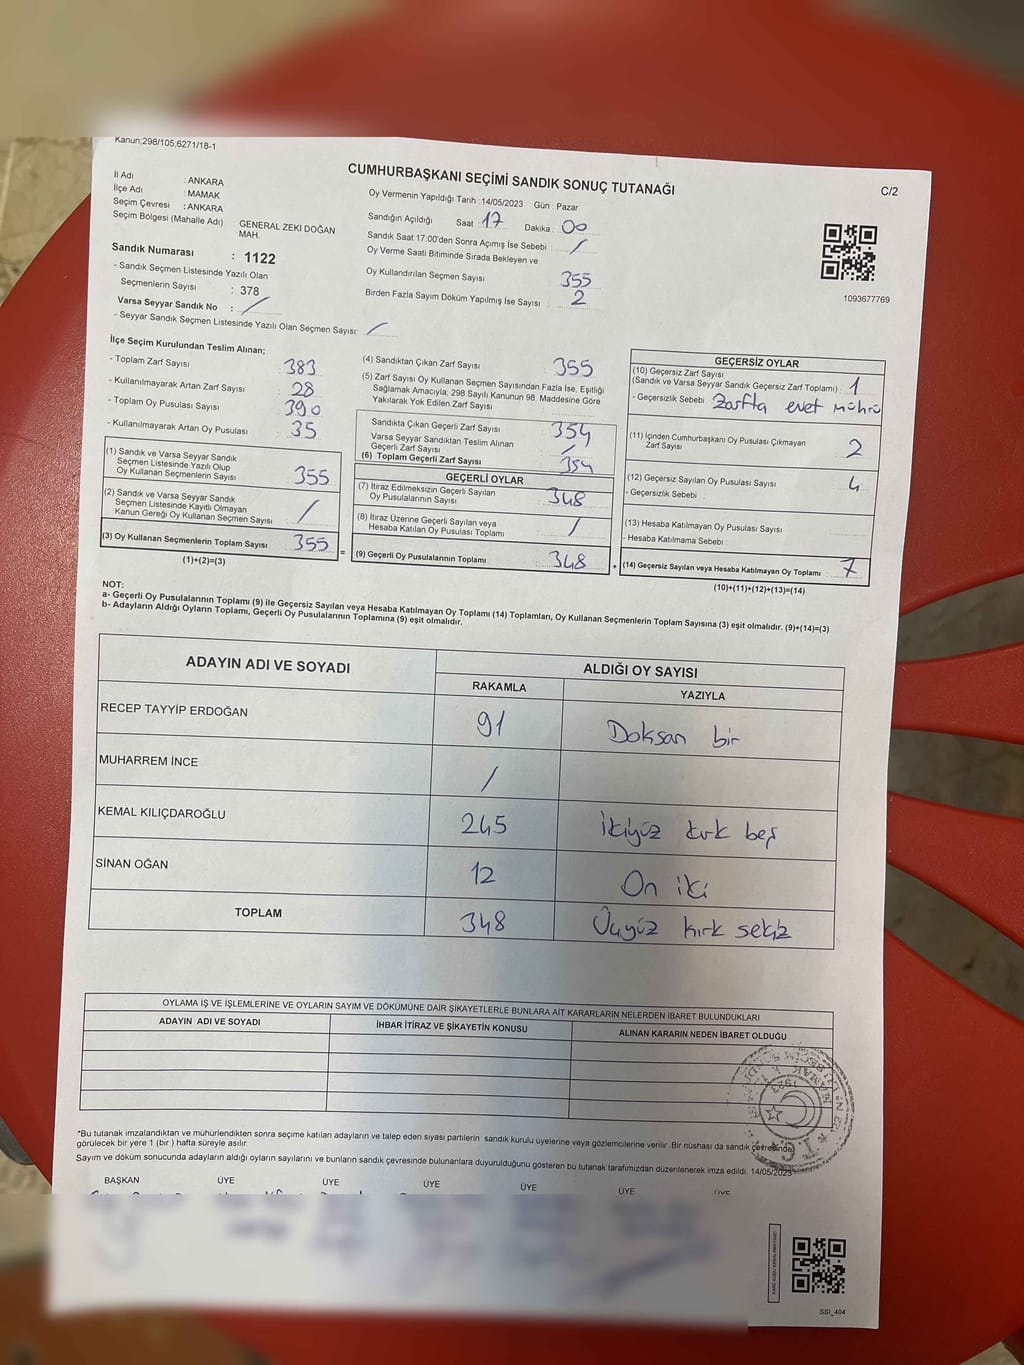 Kanun:298/105;6271/18-1
CUMHURBAŞKANI SEÇİMİ SANDIK SONUÇ TUTANAĞI
C/2
İl Adı : ANKARA
İlçe Adı : MAMAK
Seçim Çevresi : ANKARA
Seçim Bölgesi (Mahalle Adı) : GENERAL ZEKİ DOĞAN
MAH.
Sandık Numarası : 1122
- Sandık Seçmen Listesinde Yazılı Olan
Seçmenlerin Sayısı : 378
Varsa Seyyar Sandık No : /
- Seyyar Sandık Seçmen Listesinde Yazılı Olan Seçmen Sayısı: /
Oy Vermenin Yapıldığı Tarih : 14/05/2023 Gün : Pazar
Sandığın Açıldığı Saat 17 Dakika : 00
Sandık Saat 17.00'den Sonra Açımış İse Sebebi : /
Oy Verme Saati Bitiminde Sırada Bekleyen ve
Oy Kullandırılan Seçmen Sayısı 355
Birden Fazla Sayım Döküm Yapılmış İse Sayısı 2
1093677769
İlçe Seçim Kurulundan Teslim Alınan;
- Toplam Zarf Sayısı : 383
- Kullanılmayarak Artan Zarf Sayısı : 28
- Toplam Oy Pusulası Sayısı : 390
- Kullanılmayarak Artan Oy Pusulası : 35
(1) Sandık ve Varsa Seyyar Sandık
Seçmen Listesinde Yazılı Olup
Oy Kullanan Seçmenlerin Sayısı : 355
(2) Sandık ve Varsa Seyyar Sandık
Seçmen Listesinde Kayıtlı Olmayan
Kanun Gereği Oy Kullanan Seçmen Sayısı : /
(3) Oy Kullanan Seçmenlerin Toplam Sayısı : 355
(1)+(2)=(3)
=
(4) Sandıktan Çıkan Zarf Sayısı : 355
(5) Zarf Sayısı Oy Kullanan Seçmen Sayısından Fazla İse, Eşitliği
Sağlamak Amacıyla, 298 Sayılı Kanunun 98. Maddesine Göre
Yakılarak Yok Edilen Zarf Sayısı
Sandıkta Çıkan Geçerli Zarf Sayısı : 354
Varsa Seyyar Sandıktan Teslim Alınan
Geçerli Zarf Sayısı : /
(6) Toplam Geçerli Zarf Sayısı : 354
GEÇERLİ OYLAR
(7) İtiraz Edilmeksizin Geçerli Sayılan
Oy Pusulalarının Sayısı : 348
(8) İtiraz Üzerine Geçerli Sayılan veya
Hesaba Katılan Oy Pusulası Toplamı : /
(9) Geçerli Oy Pusulalarının Toplamı : 348
+
GEÇERSİZ OYLAR
(10) Geçersiz Zarf Sayısı
(Sandık ve Varsa Seyyar Sandık Geçersiz Zarf Toplamı) : 1
- Geçersizlik Sebebi : Zarfta evet mührü
(11) İçinden Cumhurbaşkanı Oy Pusulası Çıkmayan
Zarf Sayısı : 2
(12) Geçersiz Sayılan Oy Pusulası Sayısı : 4
- Geçersizlik Sebebi :
(13) Hesaba Katılmayan Oy Pusulası Sayısı
- Hesaba Katılmama Sebebi :
(14) Geçersiz Sayılan veya Hesaba Katılmayan Oy Toplamı : 7
(10)+(11)+(12)+(13)=(14)
NOT:
a- Geçerli Oy Pusulalarının Toplamı (9) ile Geçersiz Sayılan veya Hesaba Katılmayan Oy Toplamı (14) Toplamları, Oy Kullanan Seçmenlerin Toplam Sayısına (3) eşit olmalıdır. (9)+(14)=(3)
b- Adayların Aldığı Oyların Toplamı, Geçerli Oy Pusulalarının Toplamına (9) eşit olmalıdır.
ADAYIN ADI VE SOYADI
ALDIĞI OY SAYISI
RAKAMLA YAZIYLA
RECEP TAYYİP ERDOĞAN 91 Doksan bir
MUHARREM İNCE /
KEMAL KILIÇDAROĞLU 245 İkiyüz kırk beş
SİNAN OĞAN 12 On iki
TOPLAM 348 Üçyüz kırk sekiz
OYLAMA İŞ VE İŞLEMLERİNE VE OYLARIN SAYIM VE DÖKÜMÜNE DAİR ŞİKAYETLERLE BUNLARA AİT KARARLARIN NELERDEN İBARET BULUNDUKLARI
ADAYIN ADI VE SOYADI İHBAR İTİRAZ VE ŞİKAYETİN KONUSU ALINAN KARARIN NEDEN İBARET OLDUĞU
*Bu tutanak imzalandıktan ve mühürlendikten sonra seçime katılan adayların ve talep eden siyasi partilerin sandık kurulu üyelerine veya gözlemcilerine verilir. Bir nüshası da sandık çevresinde
görülecek bir yere 1 (bir) hafta süreyle asılır.
Sayım ve döküm sonucunda adayların aldığı oyların sayılarını ve bunların sandık çevresinde bulunanlara duyurulduğunu gösteren bu tutanak tarafımızdan düzenlenerek imza edildi. 14/05/2023
BAŞKAN ÜYE ÜYE ÜYE ÜYE ÜYE ÜYE
SSI_404